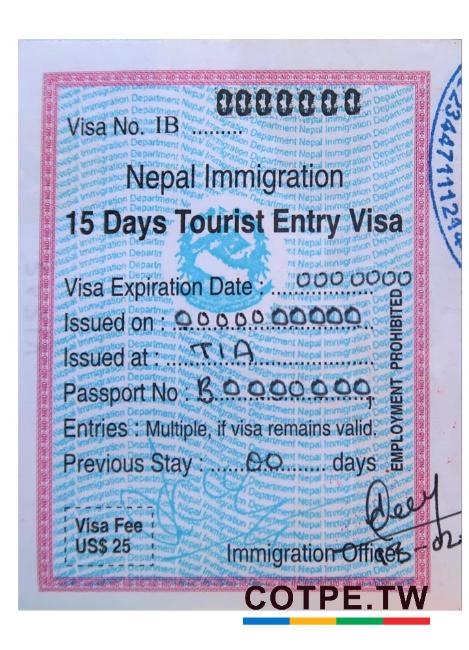 0000000
Visa No. IB .........
Nepal Immigration
15 Days Tourist Entry Visa
Visa Expiration Date : 000 0000
Issued on : 00000 00000
Issued at : TIA
Passport No : B 0000000
Entries : Multiple, if visa remains valid.
Previous Stay : 00 days
EMPLOYMENT PROHIBITED
Visa Fee
US$ 25
Immigration Officer
COTPE.TW